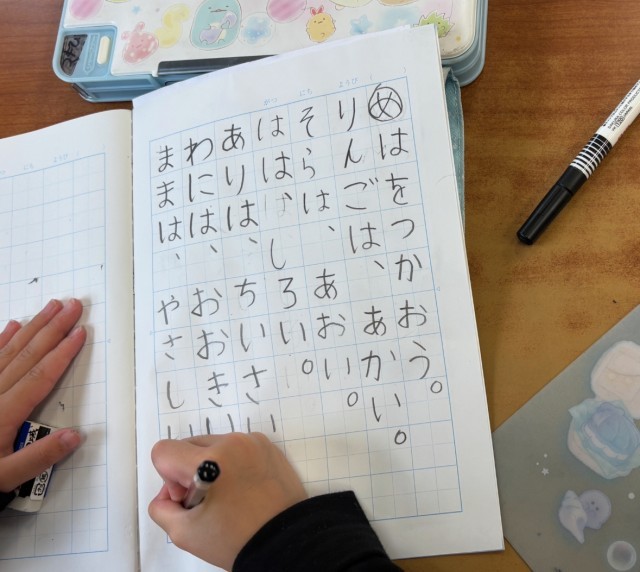 がつ にち ようび
めはをつかおう。
りんごは、あかい。
そらは、あおい。
はは、しろい。
ありは、ちいさい
わには、おおきい
ままは、やさしい